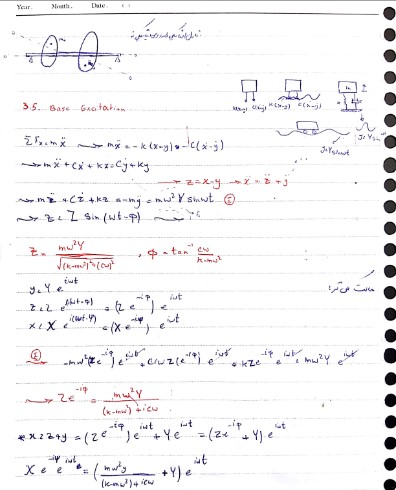 Year. Month. Date.
3.5. Base Excitation
k(x-y) c(ẋ-ẏ)
m
y=Y sin ωt
ΣFx=mẍ → mẍ = -k(x-y) - c(ẋ-ẏ)
→ mẍ + cẋ + kx = cẏ + ky
→ z = x-y → ẍ = z̈ + ÿ
→ mz̈ + cż + kz = -mÿ = mω²Y sin ωt ①
→ z = Z sin(ωt-φ)
Z = mω²Y / √((k-mω²)²+(cω)²) , φ = tan⁻¹ cω / k-mω²
y = Y e^{iωt}
z = Z e^{i(ωt-φ)} = (Z e^{-iφ}) e^{iωt}
x = X e^{i(ωt-ψ)} = (X e^{-iψ}) e^{iωt}
① -mω²(Z e^{-iφ}) e^{iωt} + ciωZ(e^{-iφ}) e^{iωt} + kZ e^{-iφ} e^{iωt} = mω²Y e^{iωt}
→ Z e^{-iφ} = mω²Y / (k-mω²)+icω
* x = z+y = (Z e^{-iφ}) e^{iωt} + Y e^{iωt} = (Z e^{-iφ} + Y) e^{iωt}
X e^{-iψ} e^{iωt} = (mω²Y / (k-mω²)+icω + Y) e^{iωt}